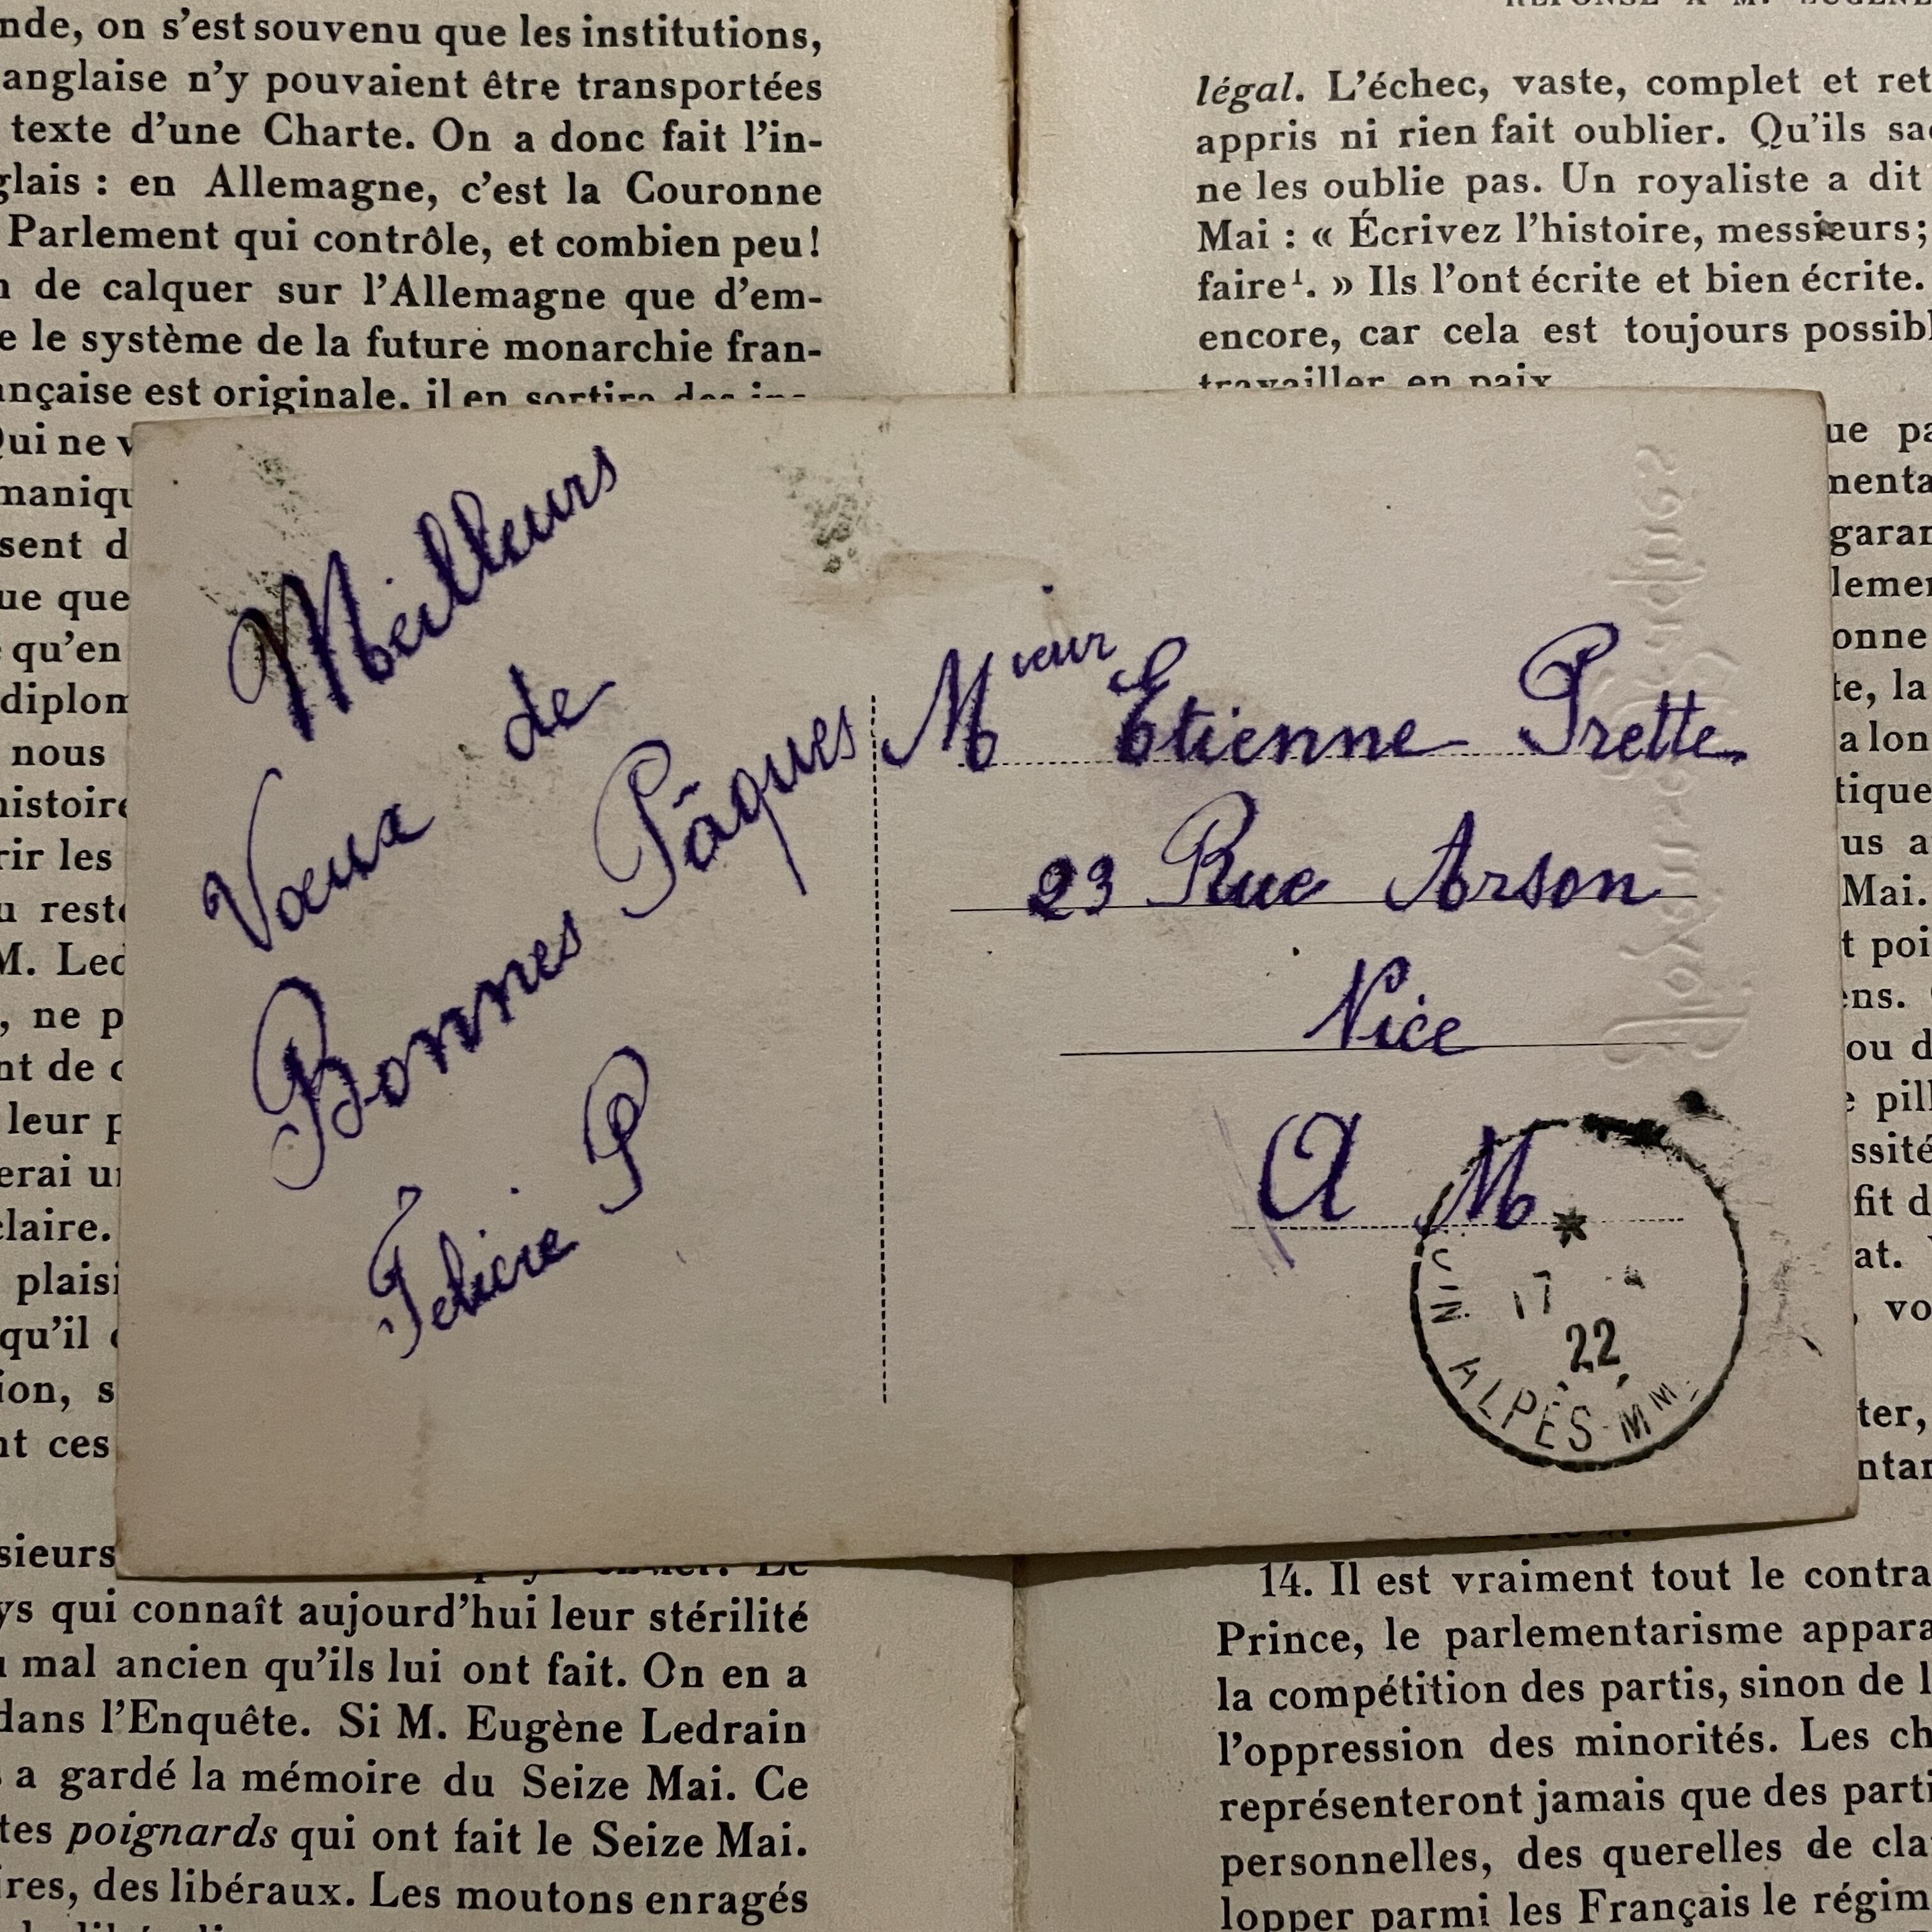 nde, on s'est souvenu que les institutions,
anglaise n'y pouvaient être transportées
texte d'une Charte. On a donc fait l'in-
glais : en Allemagne, c'est la Couronne
Parlement qui contrôle, et combien peu!
de calquer sur l'Allemagne que d'em-
e le système de la future monarchie fran-
nçaise est originale, il en sortira des ins-
Qui ne v
maniqu
sent d
ue que
qu'en
diplom
nous
histoire
rir les
u reste
M. Led
, ne p
nt de c
leur p
erai un
claire.
plaisi
qu'il
ion, s
nt ces
sieurs
ys qui connaît aujourd'hui leur stérilité
mal ancien qu'ils lui ont fait. On en a
dans l'Enquête. Si M. Eugène Ledrain
a gardé la mémoire du Seize Mai. Ce
tes poignards qui ont fait le Seize Mai.
ires, des libéraux. Les moutons enragés
Meilleurs
Vœux de
Bonnes Pâques
Felicie P
Mieur Etienne Prette
23 Rue Arson
Nice
A M
17
22
ALPES-MMES
RÉPONSE A M. EUGÈNE
légal. L'échec, vaste, complet et ret
appris ni rien fait oublier. Qu'ils sa
ne les oublie pas. Un royaliste a dit
Mai : « Écrivez l'histoire, messieurs;
faire¹. » Ils l'ont écrite et bien écrite.
encore, car cela est toujours possibl
travailler en paix
ue pa
menta
garan
lemen
onne
te, la
a lon
tique
us a
Mai.
t poi
ens.
ou d
e pill
ssité
fit d
at.
, vo
ter,
ntar
14. Il est vraiment tout le contra
Prince, le parlementarisme appara
la compétition des partis, sinon de l
l'oppression des minorités. Les ch
représenteront jamais que des parti
personnelles, des querelles de cla
lopper parmi les Français le régim